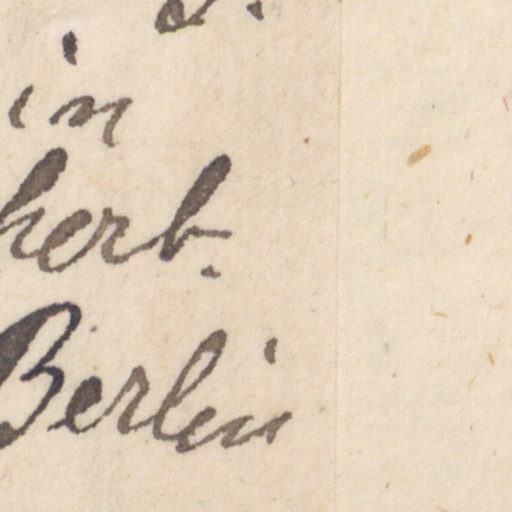 in
herb.
Berlin